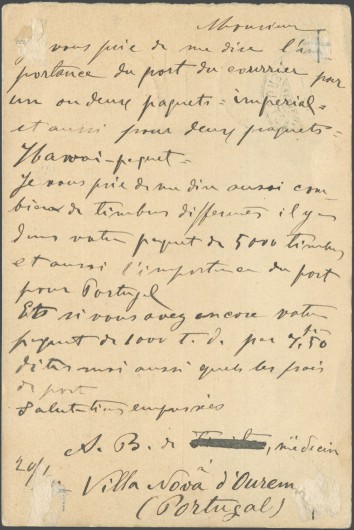 Monsieur
Je vous prie de me dire l'im
portance du port du courrier pour
un ou deux paquets = impérial =
et aussi pour deux paquets =
Hawai-paquet =
Je vous prie de me dire aussi com
bien de timbres differents il y a
dans votre paquet de 5000 timbres
et aussi l'importance du port
pour Portugal
Et si vous avez encore votre
paquet de 1000 t. d. par 7,50
dites moi aussi quels les frais
de port
Salutations empressées
A. B. de , médecin
20/1
Villa Nova d'Ourem
(Portugal)